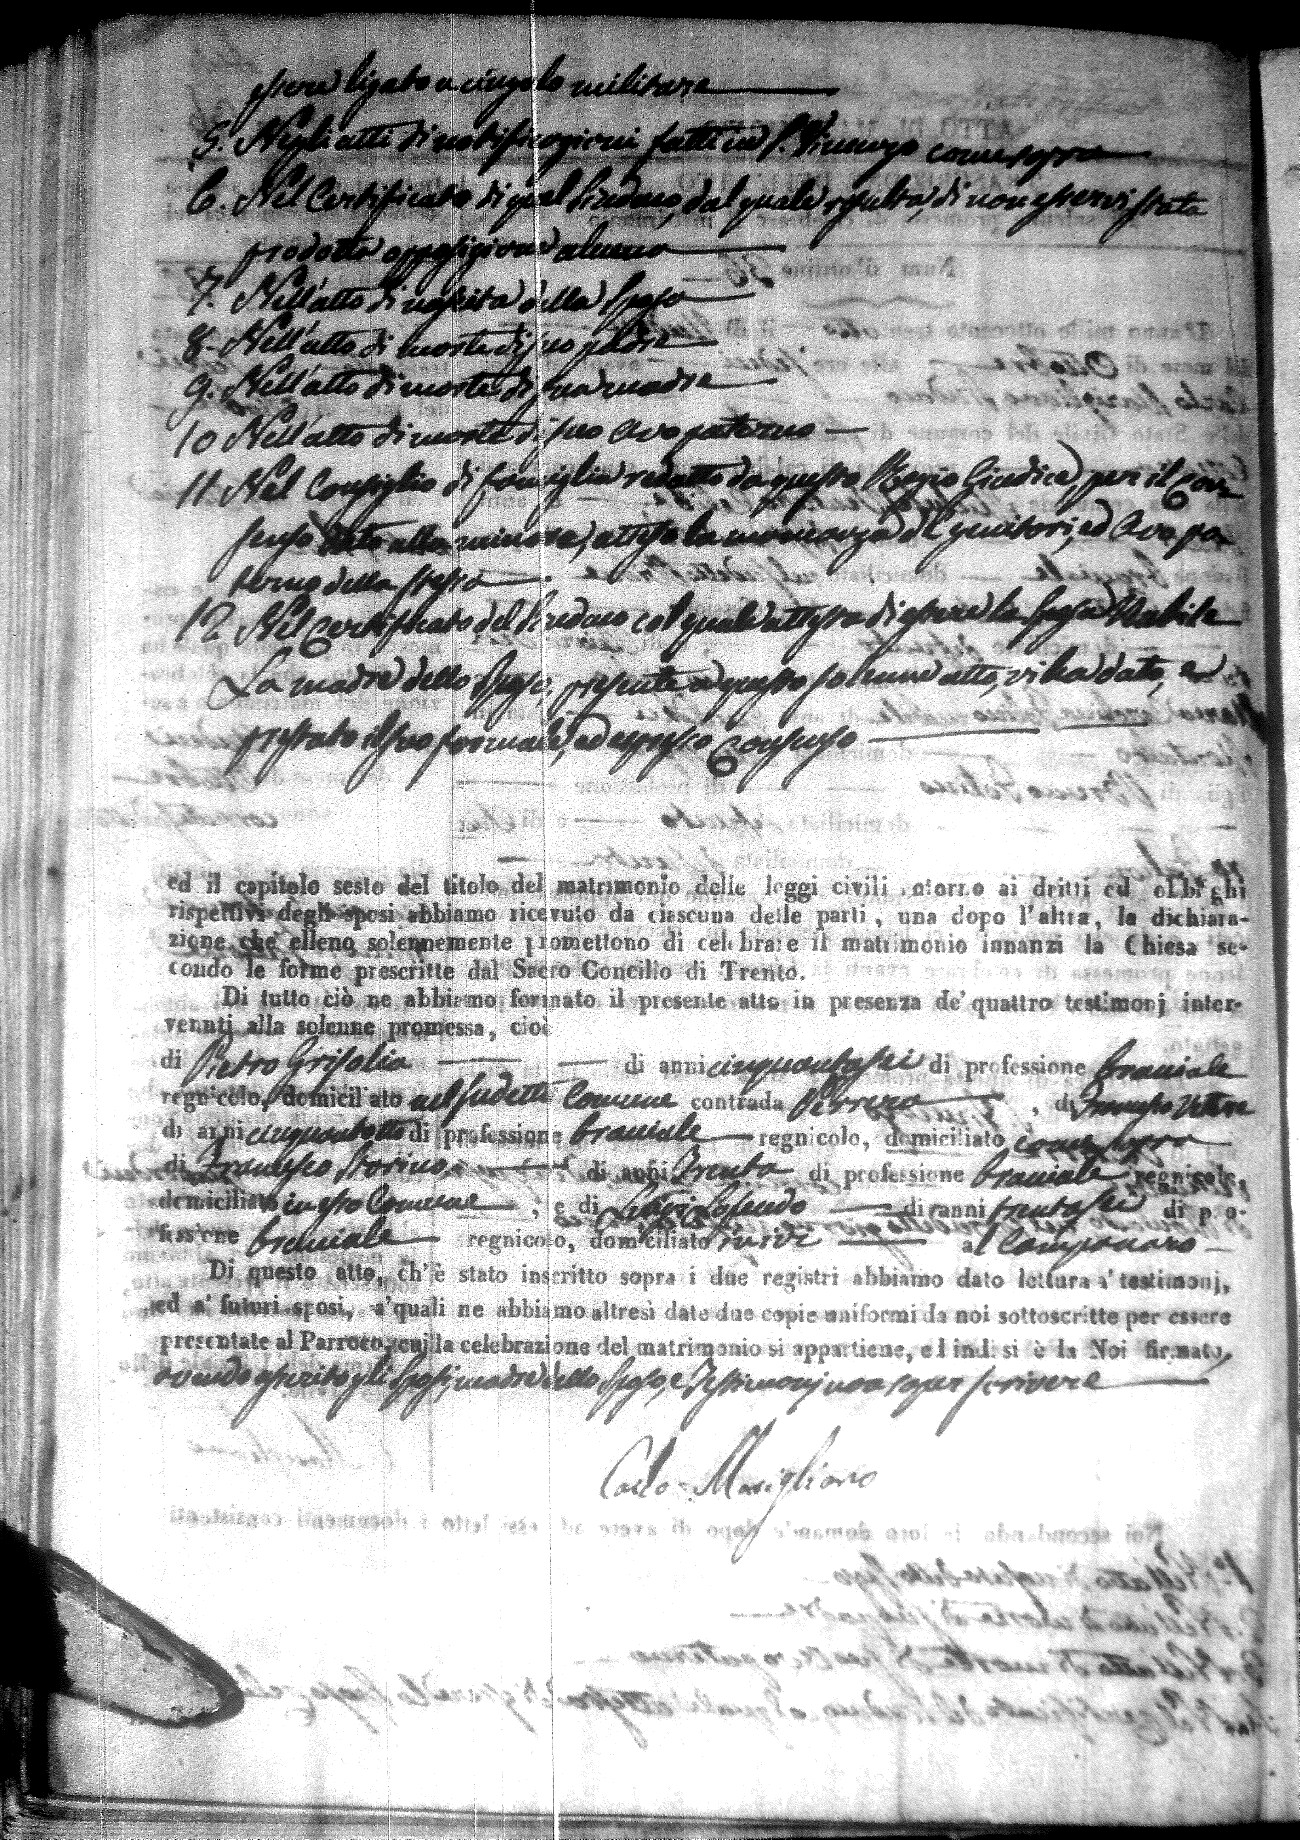 essere ligato a cingolo militare
5. Negli atti di notificazioni fatti in S. Vincenzo come sopra
6. Nel Certificato di quel Sindaco, dal quale risulta, di non esservi stata
prodotta opposizione alcuna
7. Nell'atto di nascita della Sposa
8. Nell'atto di morte di suo padre
9. Nell'atto di morte di sua madre
10 Nell'atto di morte di suo Avo paterno
11. Nel Consiglio di famiglia redatto da questo Regio Giudice, per il Con
senso dato alla minore, attesa la mancanza de' genitori, ed Avo pa
terno della stessa
12 Nel Certificato del Sindaco col quale attesta di essere la Sposa Nubile
La madre dello Sposo, presente a questo solenne atto, vi ha dato, e
prestato il suo formale, ed espresso Consenso
ed il capitolo sesto del titolo del matrimonio delle leggi civili intorno ai dritti ed obblighi
rispettivi degli sposi abbiamo ricevuto da ciascuna delle parti, una dopo l'altra, la dichiara-
zione, che elleno solennemente promettono di celebrare il matrimonio innanzi la Chiesa se-
condo le forme prescritte dal Sacro Concilio di Trento.
Di tutto ciò ne abbiamo formato il presente atto in presenza de' quattro testimonj inter-
venuti alla solenne promessa, cioè
di Pietro Grisolia di anni cinquantasei di professione bracciale
regnicolo, domiciliato nel sudetto Comune contrada, di
di anni cinquantotto di professione bracciale regnicolo, domiciliato come sopra
di Francesco Storino di anni trenta di professione bracciale regnicolo,
domiciliato in qsto Comune, e di Luigi di anni trentasei di pro-
fessione bracciale regnicolo, domiciliato ivi al Campanaro
Di questo atto, ch'è stato inscritto sopra i due registri abbiamo dato lettura a' testimonj,
ed a' futuri sposi, a' quali ne abbiamo altresì date due copie uniformi da noi sottoscritte per essere
presentate al Parroco, cui la celebrazione del matrimonio si appartiene, ed indi si è da Noi firmato,
avendo asserito gli Sposi, madre dello Sposo, e Testimonj non saper scrivere
Carlo Marigliano